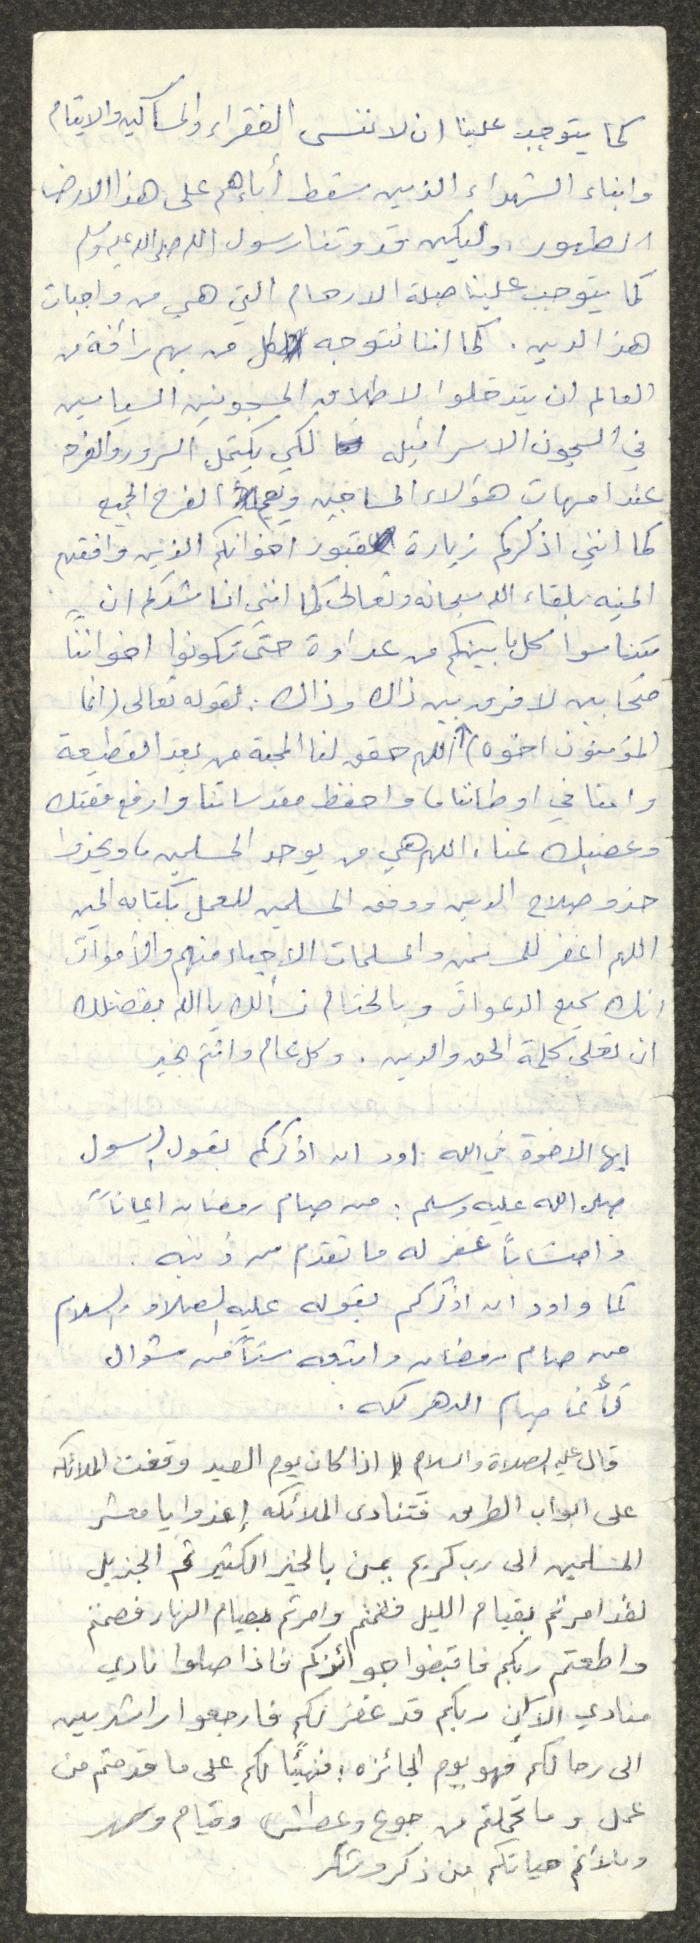 كما يتوجب علينا ان لا ننسى الفقراء والمساكين والايتام
وابناء الشهداء الذين سقط أباءهم على هذا الارض
الطهور، وليكن قدوتنا رسول الله صلى الله عليه وسلم
كما يتوجب علينا صلة الارحام التي هي من واجبات
هذا الدين . كما اننا نتوجه لكل من بهم رأفة من
العالم ان يتدخلوا لاطلاق المسجونين السياسين
في السجون الاسرائيله لكي يكتمل السرور والفرح
عند امهات هؤلاء المساجين ويعم الفرح الجميع
كما انني اذكركم زيارة قبور اخوانكم الذين وافقتهم
المنيه بلقاء الله سبحانه وتعالى كما انني اناشدكم ان
تتناسوا كل ما بينكم من عداوة حتى تكونوا اخواننًا
متحابين لا فرق بين ذاك وذاك : لقوله تعالى (انما
المؤمنون اخوه) اللهم حقق لنا المحبة من بعد القطيعة
وامنا في اوطاننا، واحفظ مقدساتنا وارفع مقتك
وغضبك عنا، اللهم هيي من يوحد المسلمين، ويحذوا
حذو صلاح الدين ووفق المسلمين للعمل بكتابه المبين
اللهم اغفر للمسلمين والمسلمات الاحياء منهم والأموات
انك سميع الدعوات وبالختام نسألك يا الله بفضلك
ان تعلي كلمة الحق والدين . وكل عام وانتم بخير
ايها الاخوة في الله . اود ان اذكركم بقول الرسول
صلى الله عليه وسلم : من صام رمضان ايماناً
واحتساباً غفر له ما تقدم من ذنبه .
كما واود ان اذكركم بقوله عليه الصلاة والسلام
من صام رمضان واتبعه ستاً من شوال
كأنما صام الدهر كله .
قال عليه الصلاة والسلام (( اذا كان يوم العيد وقفت الملائكه
على ابواب الطرق فتنادى الملائكه إغدوا يا معشر
المسلمين الى رب كريم يمن بالخير الكثير ثم الجزيل
لقد امرتم بقيام الليل فقمتم وامرتم بصيام النهار فصمتم
واطعتم ربكم فاقبضوا جوائزكم فاذا صلوا نادي
منادي الا ان ربكم قد غفر لكم فارجعوا راشدين
الى رحالكم فهو يوم الجائزه ؛ فهنيئًا لكم على ما قدمتم من
عمل وما تحملتم من جوع وعطش وقيام وسهر
وملأتم حياتكم من ذكر وشكر